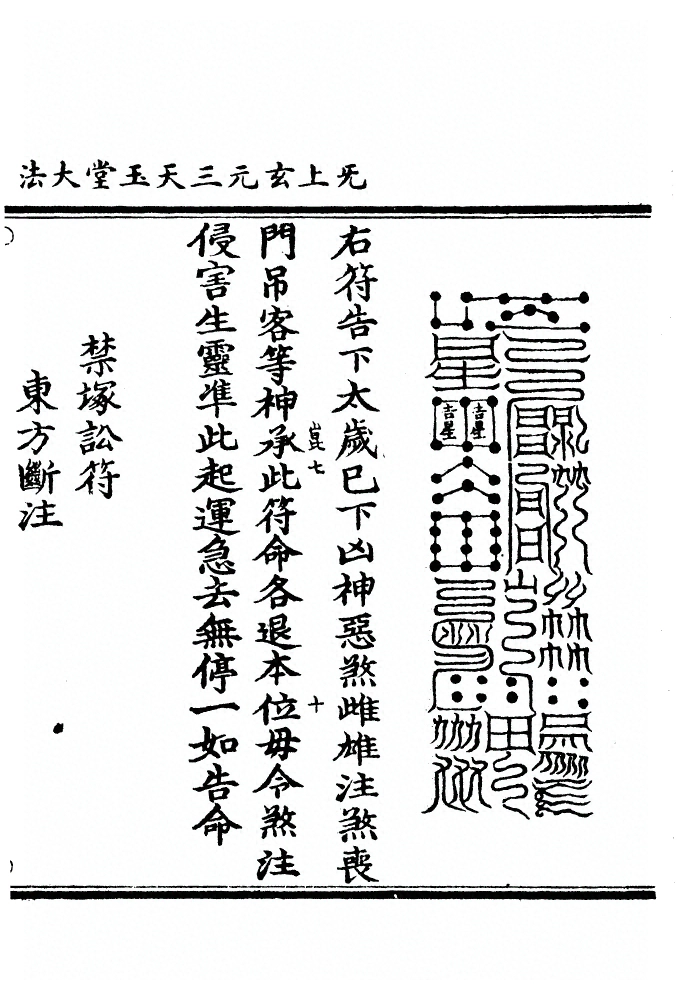 无上玄元三天玉堂大法
吉星
吉星
右符告下太歲巳下凶神惡煞雌雄注煞喪
崑七
十
門吊客等神承此符命各退本位毋令煞注
侵害生靈準此起運急去無停一如告命
禁塚訟符
東方斷注